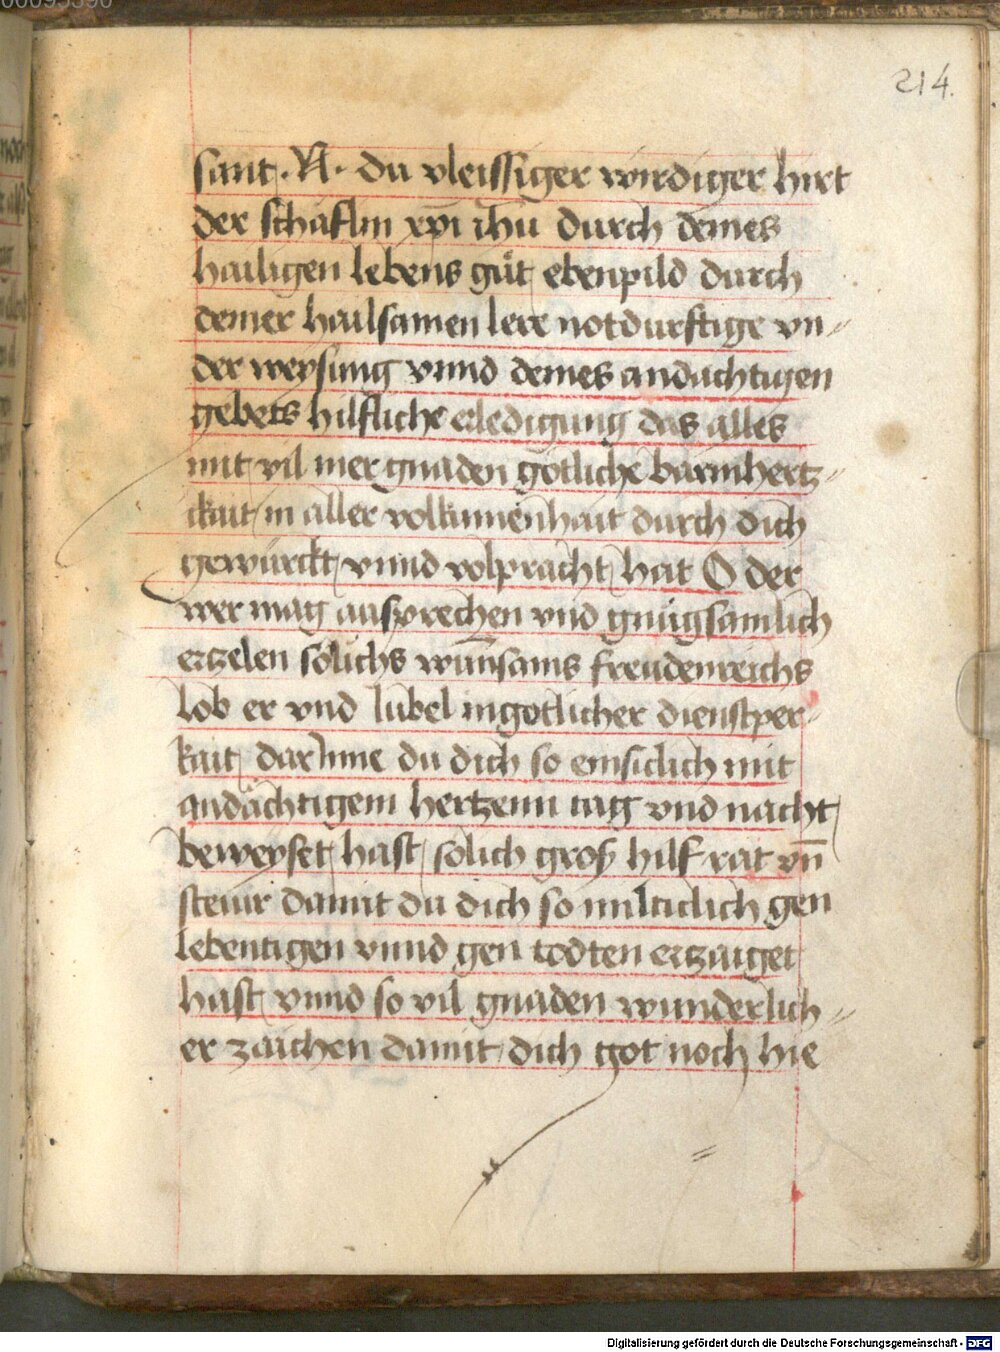 00095590
214.
sant . N . du vleissiger wirdiger hirt
der schäflin xpi ihu durch deines
hailigen lebens gůt ebenpild durch
deiner hailsamen lere notdurftige vn⸗
der weysung vnnd deines andächtigen
gebets hilfliche erledigung das alles
mit vil mer gnaden götliche barmhertz⸗
ikait in aller volkumenhait durch dich
gewürckt vnnd volpracht hat O der
wer mag aussprechen vnd gnůgsamlich
erzelen sölichs wun̄sams freudenreichs
lob er vnd lubel in gotlicher dienstper⸗
kait dar Inne du dich so emsiclich mit
andächtigem hertzenn tag vnd nacht
beweyset hast solich groß hilf rat vn̄
steuir damit du dich so milticlich gen
lebentigen vnnd gen todten erzaiget
hast vnnd so vil gnaden wunderlich⸗
er zaichen damit dich got noch hie
Digitalisierung gefördert durch die Deutsche Forschungsgemeinschaft - DFG